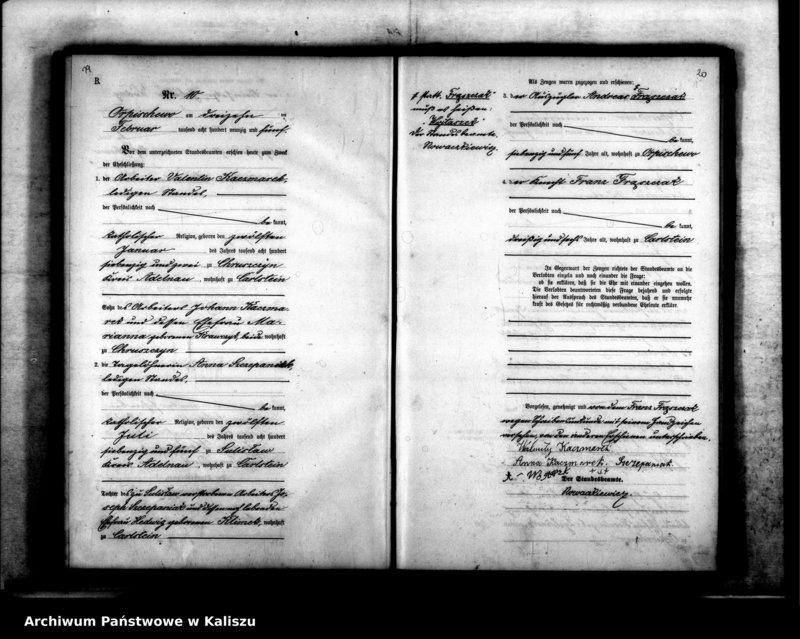 B.
Nr. 10.
Orpischewo am dreizehn ten
Februar tausend acht hundert neunzig und fünf.
Vor dem unterzeichneten Standesbeamten erschien heute zum Zweck
der Eheschließung:
1. der Arbeiter Valentin Kaczmarek,
ledigen Standes,
der Persönlichkeit nach
be kannt,
katholischer Religion, geboren den zwölften
Januar des Jahres tausend acht hundert
siebenzig und zwei zu Chruszczyn
Kreis Adelnau, wohnhaft zu Carlstein
Sohn des Arbeiters Johann Kaczma-
rek und dessen Ehefrau Ma-
rianna geborenen, beide wohnhaft
zu Chruszczyn
2. die Tagelöhnerin Anna Szczepaniak,
ledigen Standes,
der Persönlichkeit nach
be kannt,
katholischer Religion, geboren den zwölften
Juli des Jahres tausend acht hundert
siebenzig und fünf zu Sulislaw
Kreis Adelnau, wohnhaft zu Carlstein
Tochter des zu Sulislaw verstorbenen Arbeiters Jo-
seph Szczepaniak und dessen noch lebenden
Ehefrau Hedwig geborenen Klimek, wohnhaft
zu Carlstein
20
Als Zeugen waren zugezogen und erschienen:
3. der Auszügler Andreas Frąszczak
der Persönlichkeit nach
be kannt,
siebenzig und fünf Jahre alt, wohnhaft zu Orpischewo
4. der Knecht Franz Frąszczak
der Persönlichkeit nach
be kannt,
dreißig und sechs Jahre alt, wohnhaft zu Carlstein
In Gegenwart der Zeugen richtete der Standesbeamte an die
Verlobten einzeln und nach einander die Frage:
ob sie erklären, daß sie die Ehe mit einander eingehen wollen.
Die Verlobten beantworteten diese Frage bejahend und erfolgte
hierauf der Ausspruch des Standesbeamten, daß er sie nunmehr
kraft des Gesetzes für rechtmäßig verbundene Eheleute erkläre.
Vorgelesen, genehmigt und von dem Franz Frąszczak
wegen Schreibensunkunde mit seinem Handzeichen
versehen, von den anderen Erschienenen unterschrieben.
Kaczmarek
Anna Kaczmarek. Szczepaniak
+++
Der Standesbeamte.
Nowaczkiewicz
statt "Frąszczak"
muß es heißen:
"Wojtaszek"
Der Standesbeamte.
Nowaczkiewicz.
Archiwum Państwowe w Kaliszu